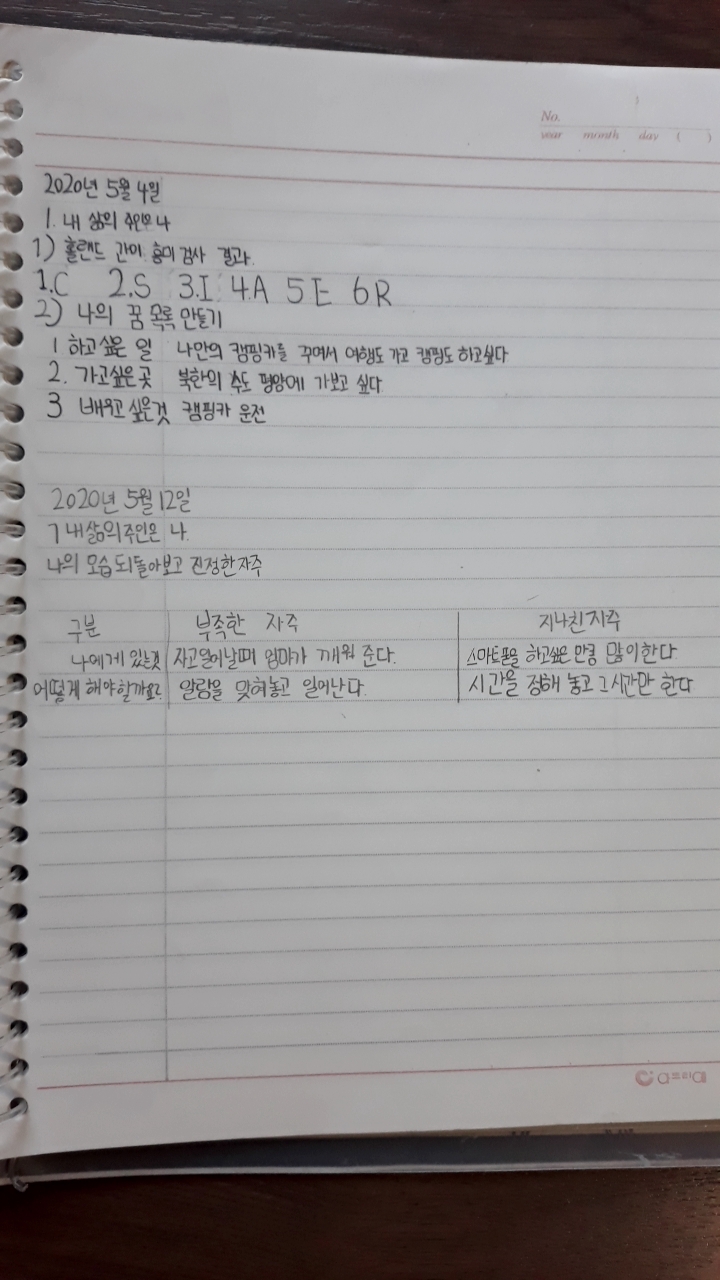 No.
year month day ( )
2020년 5월 4일
1. 내 삶의 주인은 나
1) 홀랜드 간이 흥미 검사 결과.
1.C 2.S 3.I 4.A 5 E 6 R
2) 나의 꿈 목록 만들기
1 하고싶은 일 나만의 캠핑카를 꾸며서 여행도 가고 캠핑도 하고싶다
2. 가고싶은곳 북한의 수도 평양에 가보고 싶다
3 배우고 싶은것 캠핑카 운전
2020년 5월 12일
1 내 삶의 주인은 나.
나의 모습 되돌아보고 진정한 자주
구분 부족한 자주 지나친 자주
나에게 있는것 자고 일어날때 엄마가 깨워 준다. 스마트폰을 하고싶은 만큼 많이한다
어떻게 해야 할까요? 알람을 맞혀놓고 일어난다. 시간을 정해 놓고 그시간만 한다